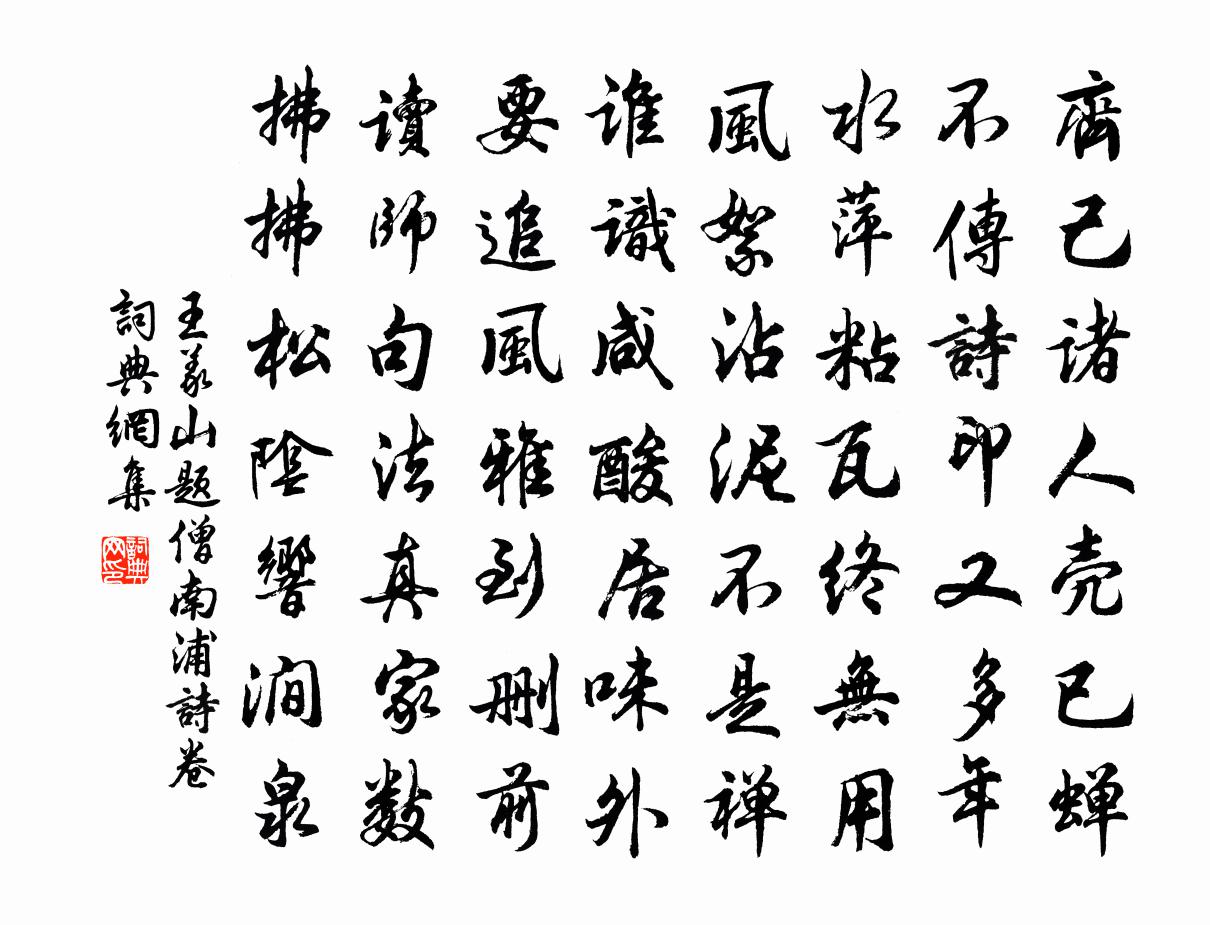 齊己诸人壳已蝉
不傳詩印又多年
水萍粘瓦终無用
風絮沾泥不是禅
谁識咸酸居味外
要追風雅到删前
讀師句法真家數
拂拂松陰響澗泉
王義山题僧南浦詩卷
詞典網集
詞典网印